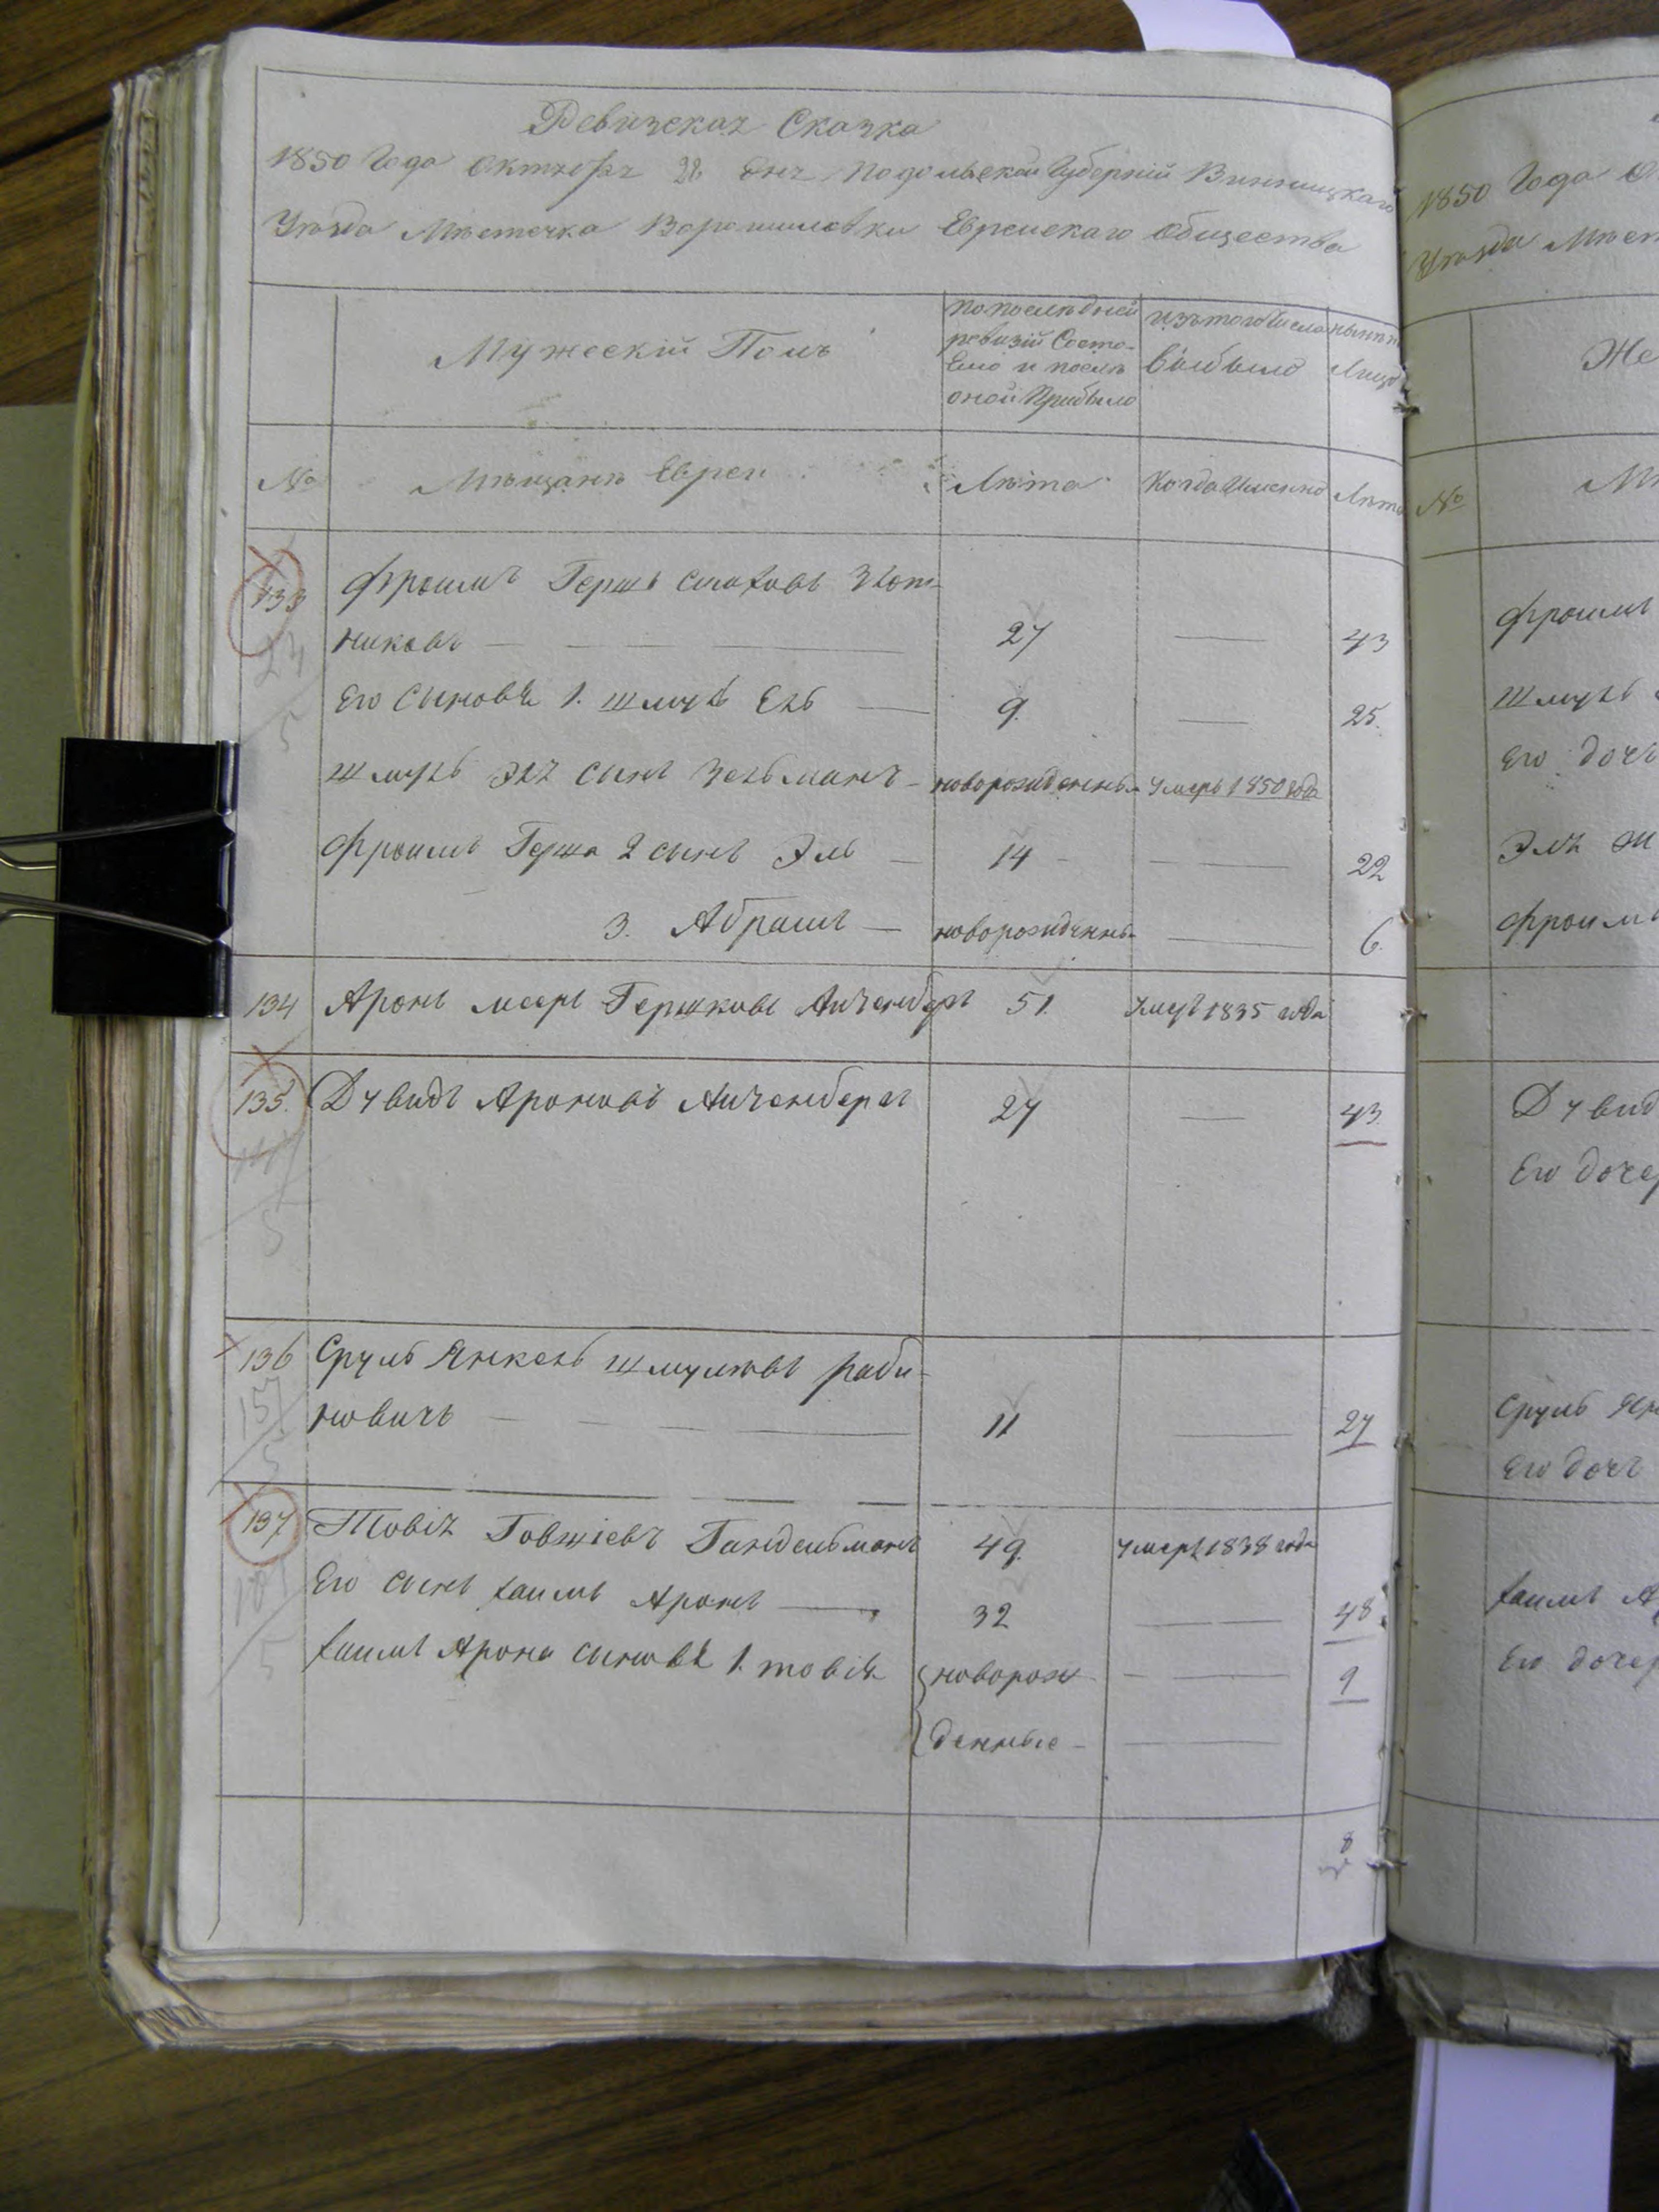 Ревизская Сказка
1850 Года Октября 22 дня Подольской Губерній Винницкаго
Уезда Мѣстечка Ворошиловки Еврейскаго Общества
Мужескій Полъ
по последней
ревизій Состо-
яло и послѣ
оной Прибыло
изъ того Числа
выбыло
нынѣ
Лицо
№
Мѣщане Евреи
Лѣта
Когда Именно
Лѣта
133 Фроимъ Гершъ
никовъ 27 43
Его Сыновья 1. Шмуль 9. 25.
Шмуль сынъ Зельманъ новорожденный умеръ 1850 года
Фроимъ Герша 2 сынъ Эль 14 22
3. Абрамъ новорожденный 6.
134 Аронъ Мееръ Гершковъ Айзенбергъ 51. умеръ 1835 года
135. Дувидъ Ароновъ Айзенбергъ 27 43.
136 Сруль Янкель Шмулевъ Раби-
новичъ 11 27
137 Товія Говшіевъ Гандельманъ 49. умеръ 1838 года
Его сынъ Хаимъ Аронъ 32 48.
Хаимъ Арона сыновья 1. Товія новорож- 9
денные
8
1850 Года
Уезда
Же
№
Фроимъ
Шмуль
Его дочь
Эля
Фроимъ
Дувид
Его дочер
Сруль
Его дочь
Хаимъ А
Его дочер